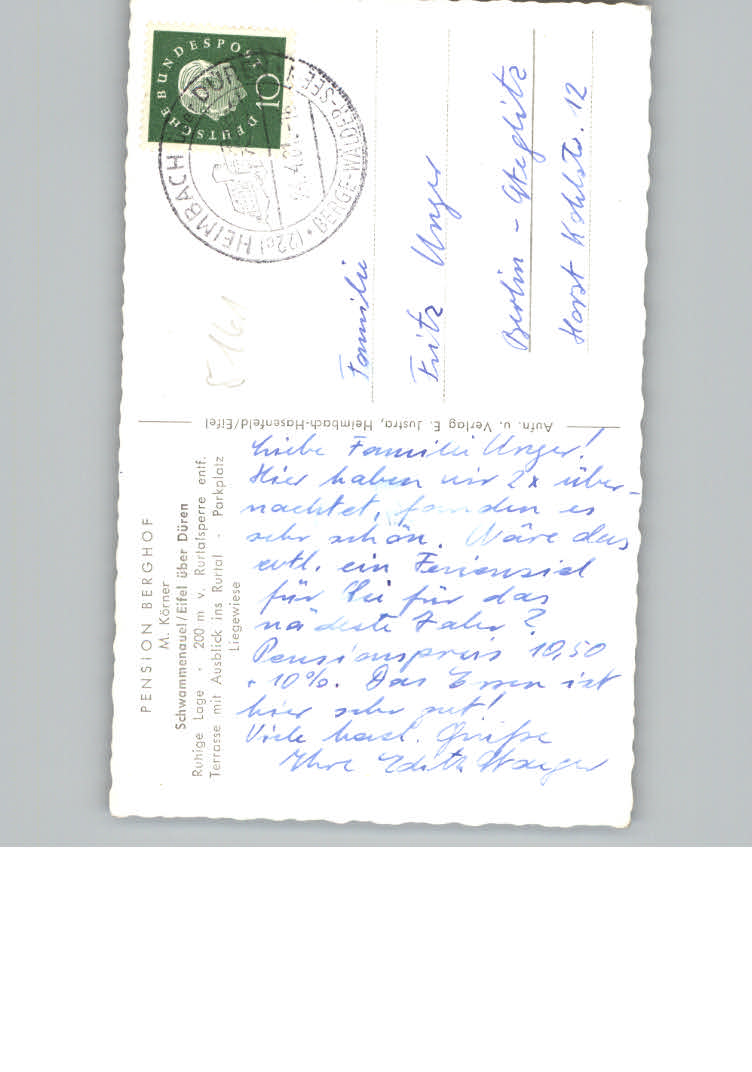 PENSION BERGHOF
M. Körner
Schwammenauel/Eifel über Düren
Ruhige Lage - 200 m v. Rurtalsperre entf.
Terrasse mit Ausblick ins Rurtal - Parkplatz
Liegewiese
Liebe Familie Unger!
Hier haben wir 2x über-
nachtet, fanden es
sehr schön. Wäre das
evtl. ein Ferienziel
für Sie für das
nächste Jahr?
Pensionspreis 10,50
+ 10%. Das Essen ist
hier sehr gut!
Viele herzl. Grüße
Ihre Edith
Aufn. u. Verlag E. Justra, Heimbach-Hasenfeld/Eifel
DEUTSCHE BUNDESPOST
10
(22c) HEIMBACH
DÜREN
BERGE-WÄLDER-SEE
Familie
Fritz Unger
Berlin - Steglitz
Horst Kohlstr. 12